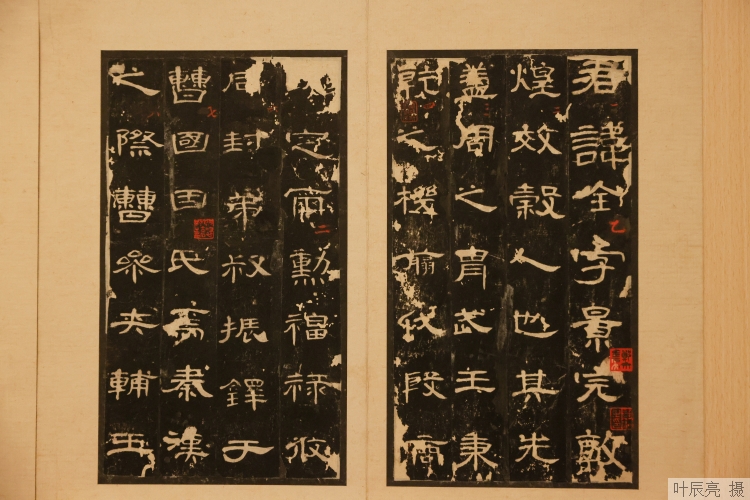 君諱全字景完敦
煌效穀人也其先
蓋周之冑武王秉
乾之機翦伐殷商
定爾勳福祿攸
同封弟叔振鐸于
曹國因氏焉秦漢
之際曹參夾輔王
叶辰亮 摄